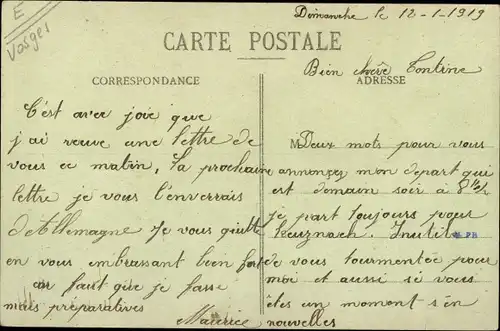 E
Vosges
Dimanche le 12-1-1919
CARTE POSTALE
CORRESPONDANCE
ADRESSE
Bien chère Tontine
M Deux mots pour vous
annonçez mon depart qui
est domain soir à 8
je part toujours pour
Kreuznach. Inutile
de vous tourmentée pour
moi et aussi si vous
êtes un moment s'en
nouvelles
C'est avec joie que
j'ai reuve une lettre de
vous ce matin, la prochaine
lettre je vous l'enverrais
d'Allemagne Je vous quitte
en vous embrassant bien fort
car faut que je fasse
mais préparatives
Maurice